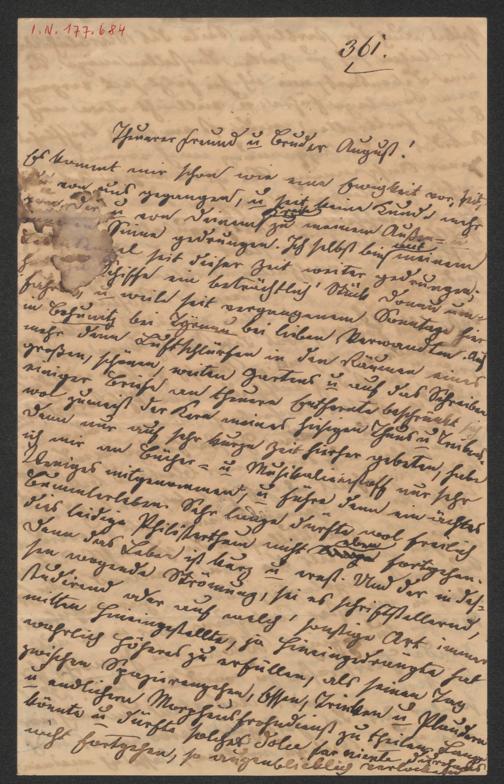 I. N. 177.684
361.
Theuerer Freund u Bruder August!
Es kommt mir schon wie eine Ewigkeit vor, seit
von uns gegangen, u seit keine Kunde mehr
u von Deinem zu meinem
Sinne gedrungen. Ich selbst bin mit meinem
seit dieser Zeit weiter gedrungen,
Schiffe ein beträchtlich' Stück Donau
u weile seit vergangenem Sonntage hier
in bei bei lieben Verwandten. Auf
mehr denn Luftschlürfen in den Räumen eines
großen, schönen, weiten Gartens u auf das Schreiben
einiger Briefe an theuere Entfernte beschränkt
wol zumeist der Kern meines hiesigen Thuns u Treibens.
Denn nur auf sehr kurze Zeit hieher gebeten, habe
ich mir an Bücher- u Musikalienstoff nur sehr
Weniges mitgenommen, u führe denn ein ächtes
Bummlerleben. Sehr lange dürfte wol freilich
dies leidige Philisterthum nicht eben fortgehen.
Denn das Leben ist kurz u ernst. Und der in des-
sen wogende Strömung, sei es schriftstellernd,
studirend oder auf welch' sonstige Art immer
mitten Hineingestellte, ja Hineingedrängte hat
wahrlich Höheres zu erfüllen, als seinen Tag
zwischen Spazierengehen, Essen, Trinken u Plaudern
u endlichem Morpheusfrohndienst zu theilen.
könnte u dürfte solches dolce far niente
nicht fortgehen, so augenblicklich